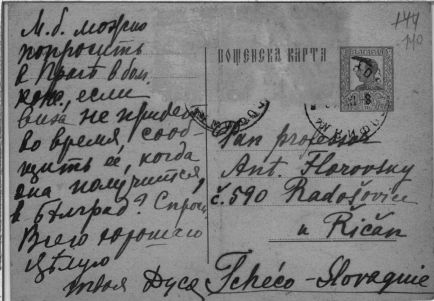 М.б. можно
попросить
в Праге в бол.
коме, если
виза не придет
во время, сооб-
щить ее, когда
она получится,
в Белград? Спроси.
Всего хорошего
Целую
твоя Дуся
ПОЩЕНСКА КАРТА
144
140
Pan profesor
Ant. Florovsky
č. 590 Radošovice
u Říčan
Tchéco-Slovaquie